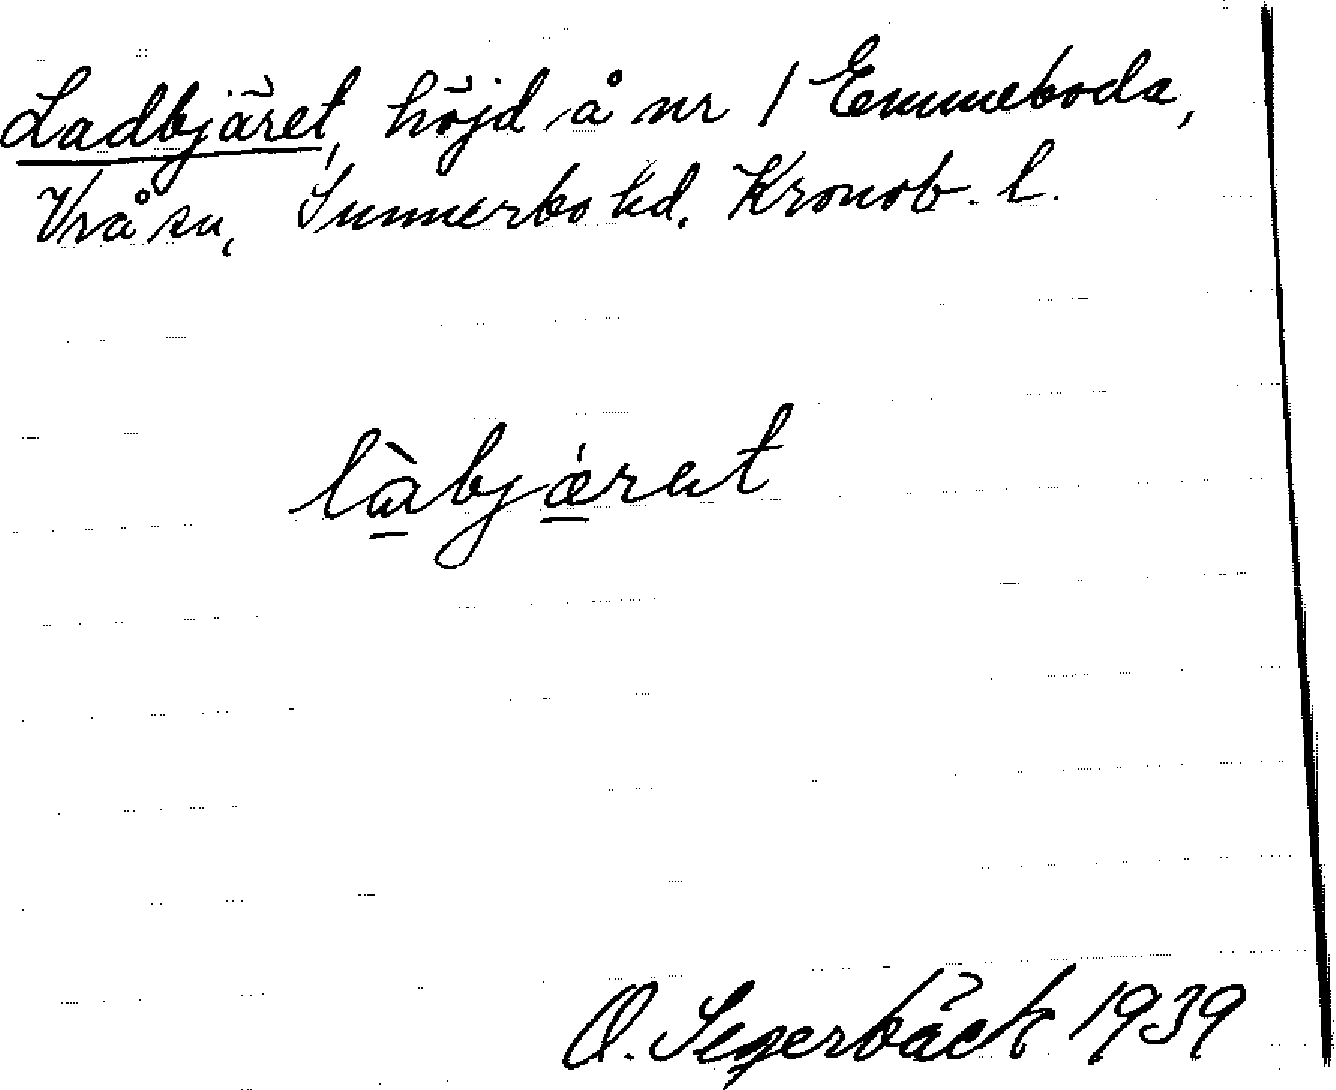 Ladbjäret, höjd å nr 1 Emmeboda,
Vrå sn, Sunnerbo hd. Kronob. l.
làbjǽrat
O. Segerbäck 1939